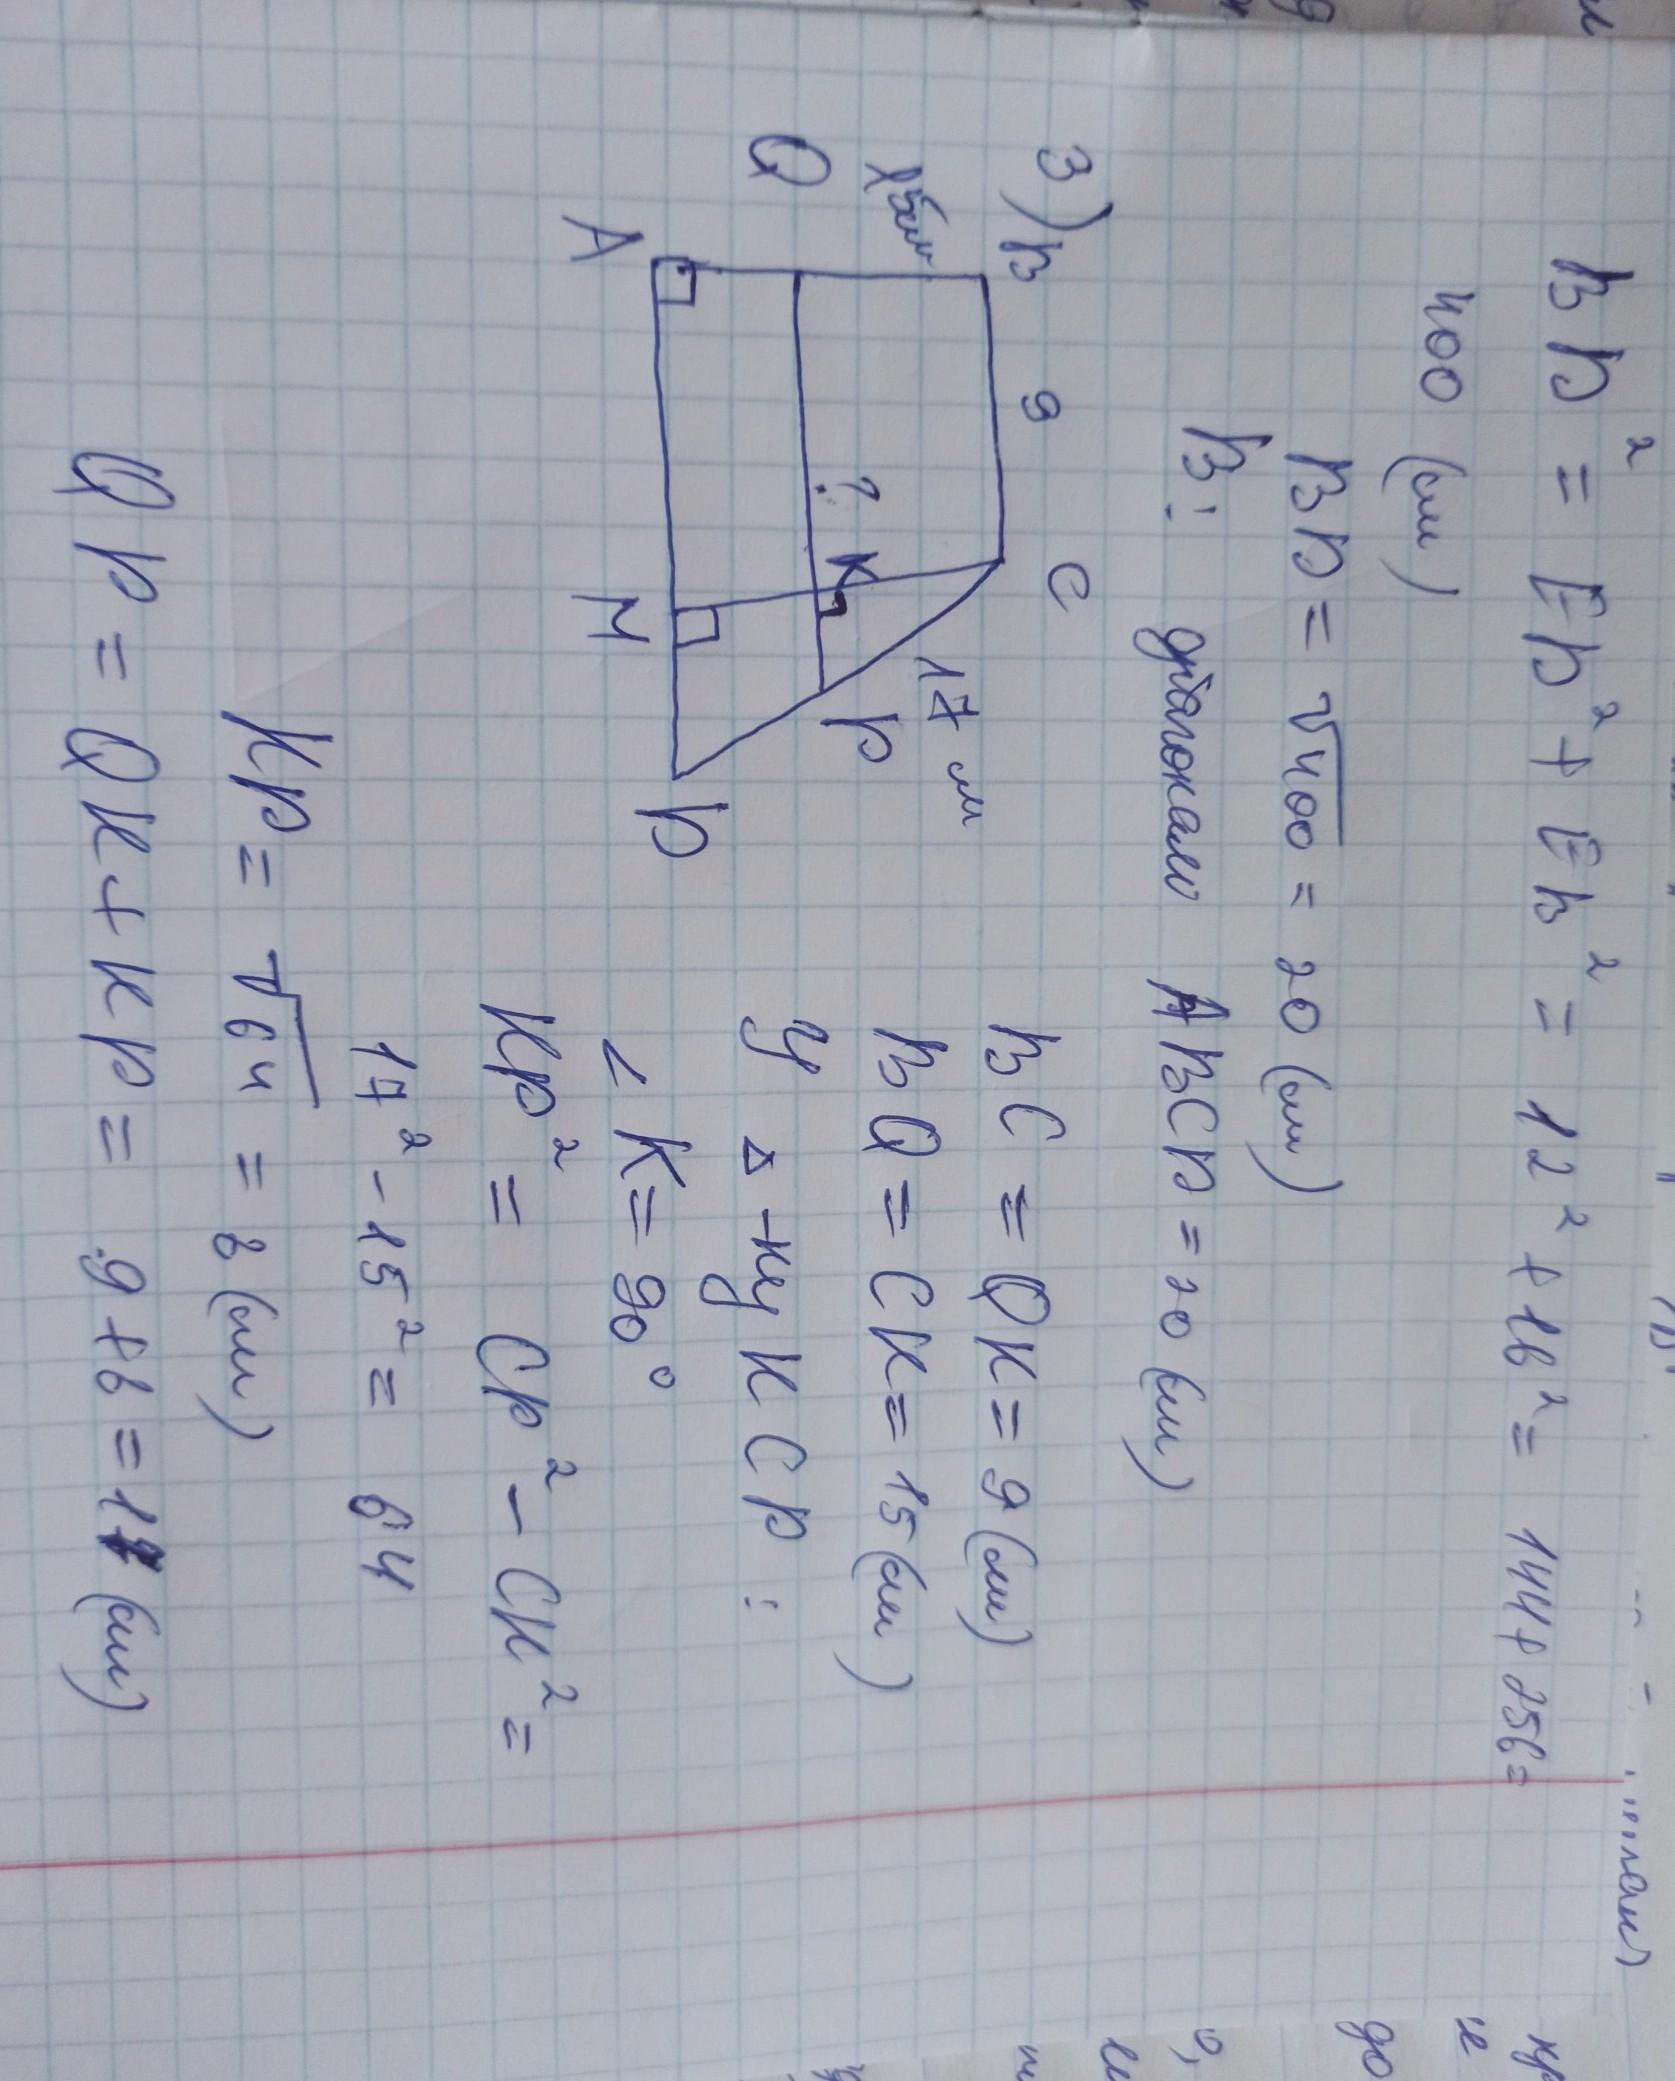 BD² = ED² + EB² = 12² + 16² = 144 + 256 =
400 (см)
BD = √400 = 20 (см)
В: діагоналі ABCD = 20 (см)
3) B 9 C
15см
17 см
Q ? K P
A M D
BC = QK = 9 (см)
BQ = CK = 15 (см)
У △-ку KCP :
∠ K = 90°
KP² = CP² - CK² =
17² - 15² = 64
KP = √64 = 8 (см)
QP = QK + KP = 9 + 8 = 17 (см)